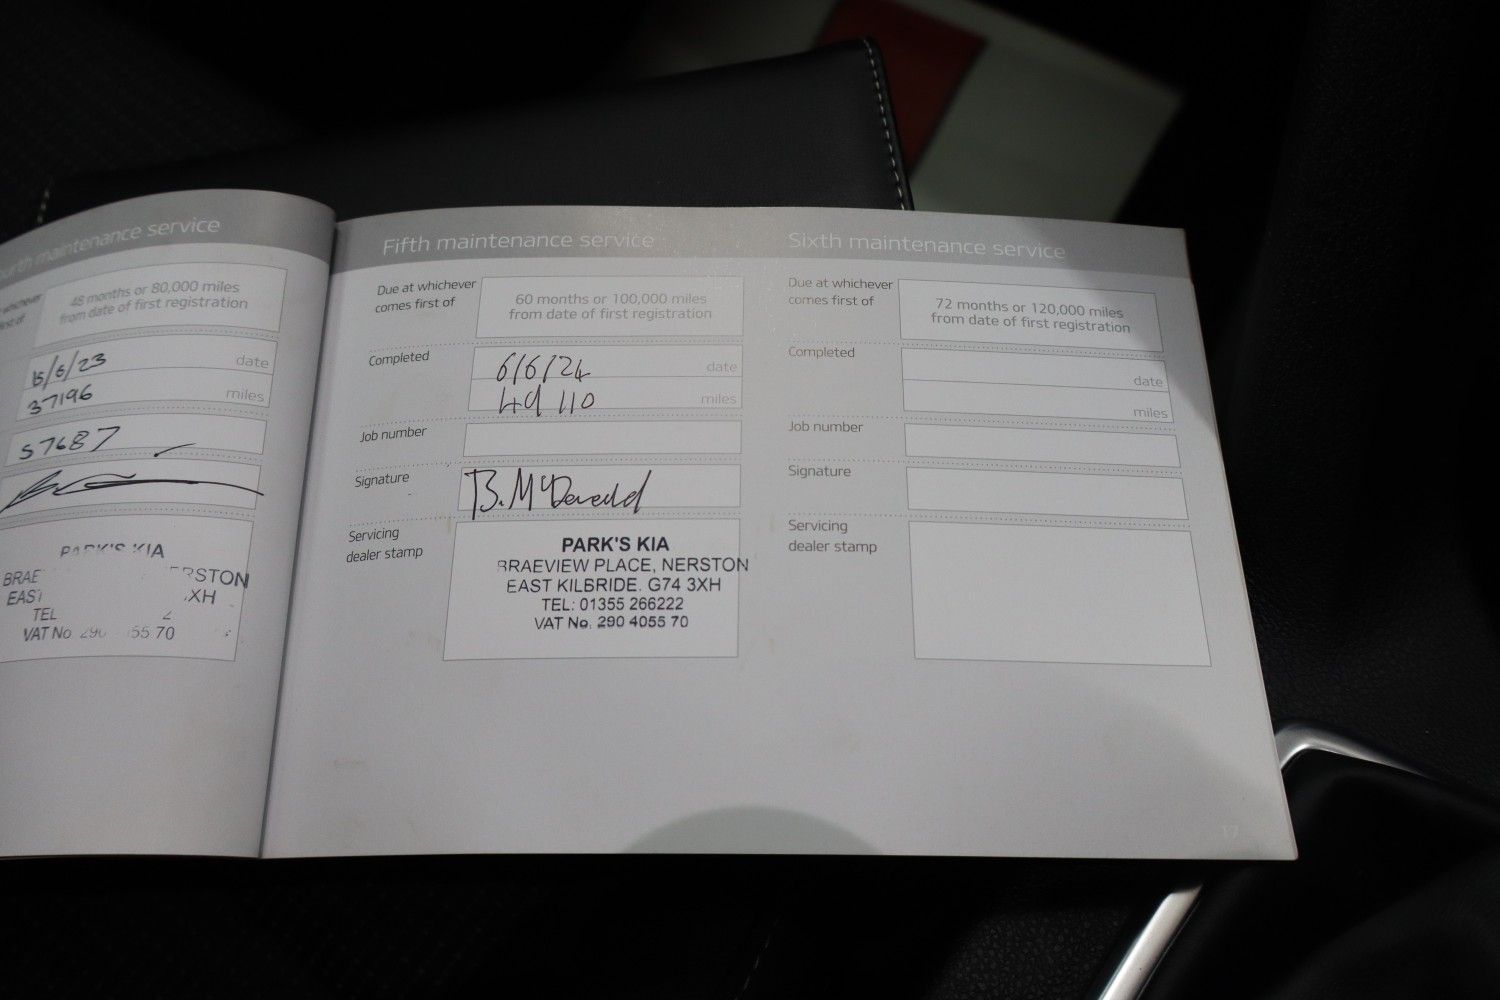 maintenance service
whichever
first of
48 months or 80,000 miles
from date of first registration
15/6/23 date
37196 miles
57687
PARK'S KIA
BRAE RSTON
EAST XH
TEL 2
VAT No. 290 55 70
Fifth maintenance service
Due at whichever
comes first of
60 months or 100,000 miles
from date of first registration
Completed
6/6/24 date
49 110 miles
Job number
Signature
B. McDonald
Servicing
dealer stamp
PARK'S KIA
BRAEVIEW PLACE, NERSTON
EAST KILBRIDE. G74 3XH
TEL: 01355 266222
VAT No. 290 4055 70
Sixth maintenance service
Due at whichever
comes first of
72 months or 120,000 miles
from date of first registration
Completed
date
miles
Job number
Signature
Servicing
dealer stamp
17